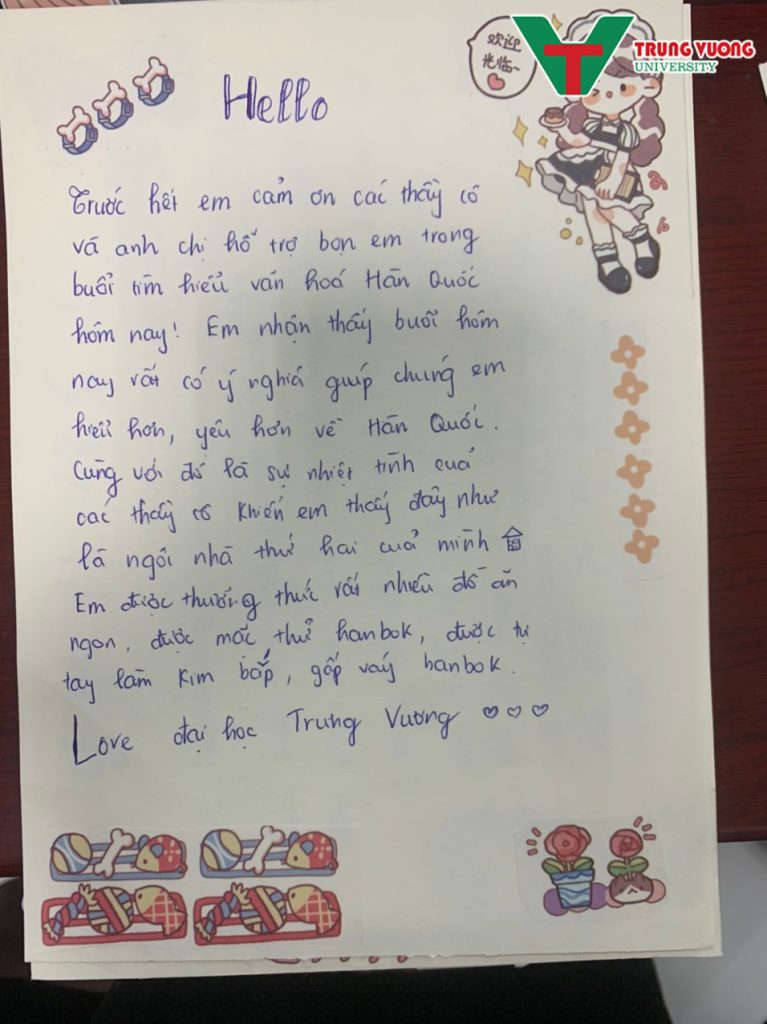 TRUNG VUONG
UNIVERSITY
欢迎
光临~
Hello
Trước hết em cảm ơn các thầy cô
và anh chị hỗ trợ bọn em trong
buổi tìm hiểu văn hoá Hàn Quốc
hôm nay! Em nhận thấy buổi hôm
nay rất có ý nghĩa giúp chúng em
hiểu hơn, yêu hơn về Hàn Quốc.
Cùng với đó là sự nhiệt tình cuả
các thầy cô khiến em thấy đây như
là ngôi nhà thứ hai cuả mình
Em được thưởng thức rất nhiều đồ ăn
ngon, được mặc thử hanbok, được tự
tay làm kim bắp, gấp váy hanbok.
Love đại học Trưng Vương ♡♡♡